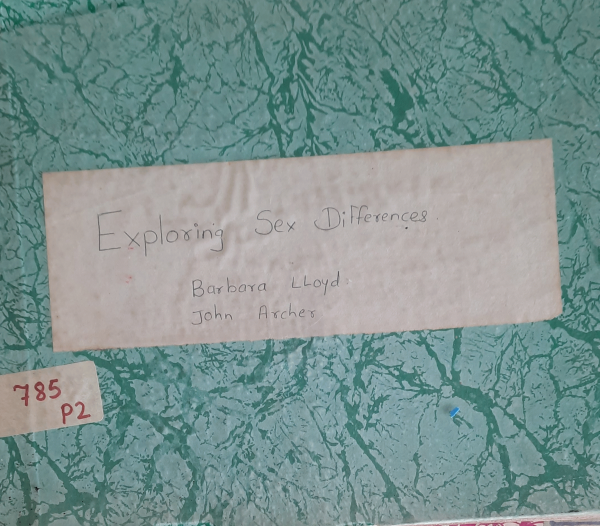 Exploring Sex Differences.
Barbara LLoyd.
John Archer
785
P2